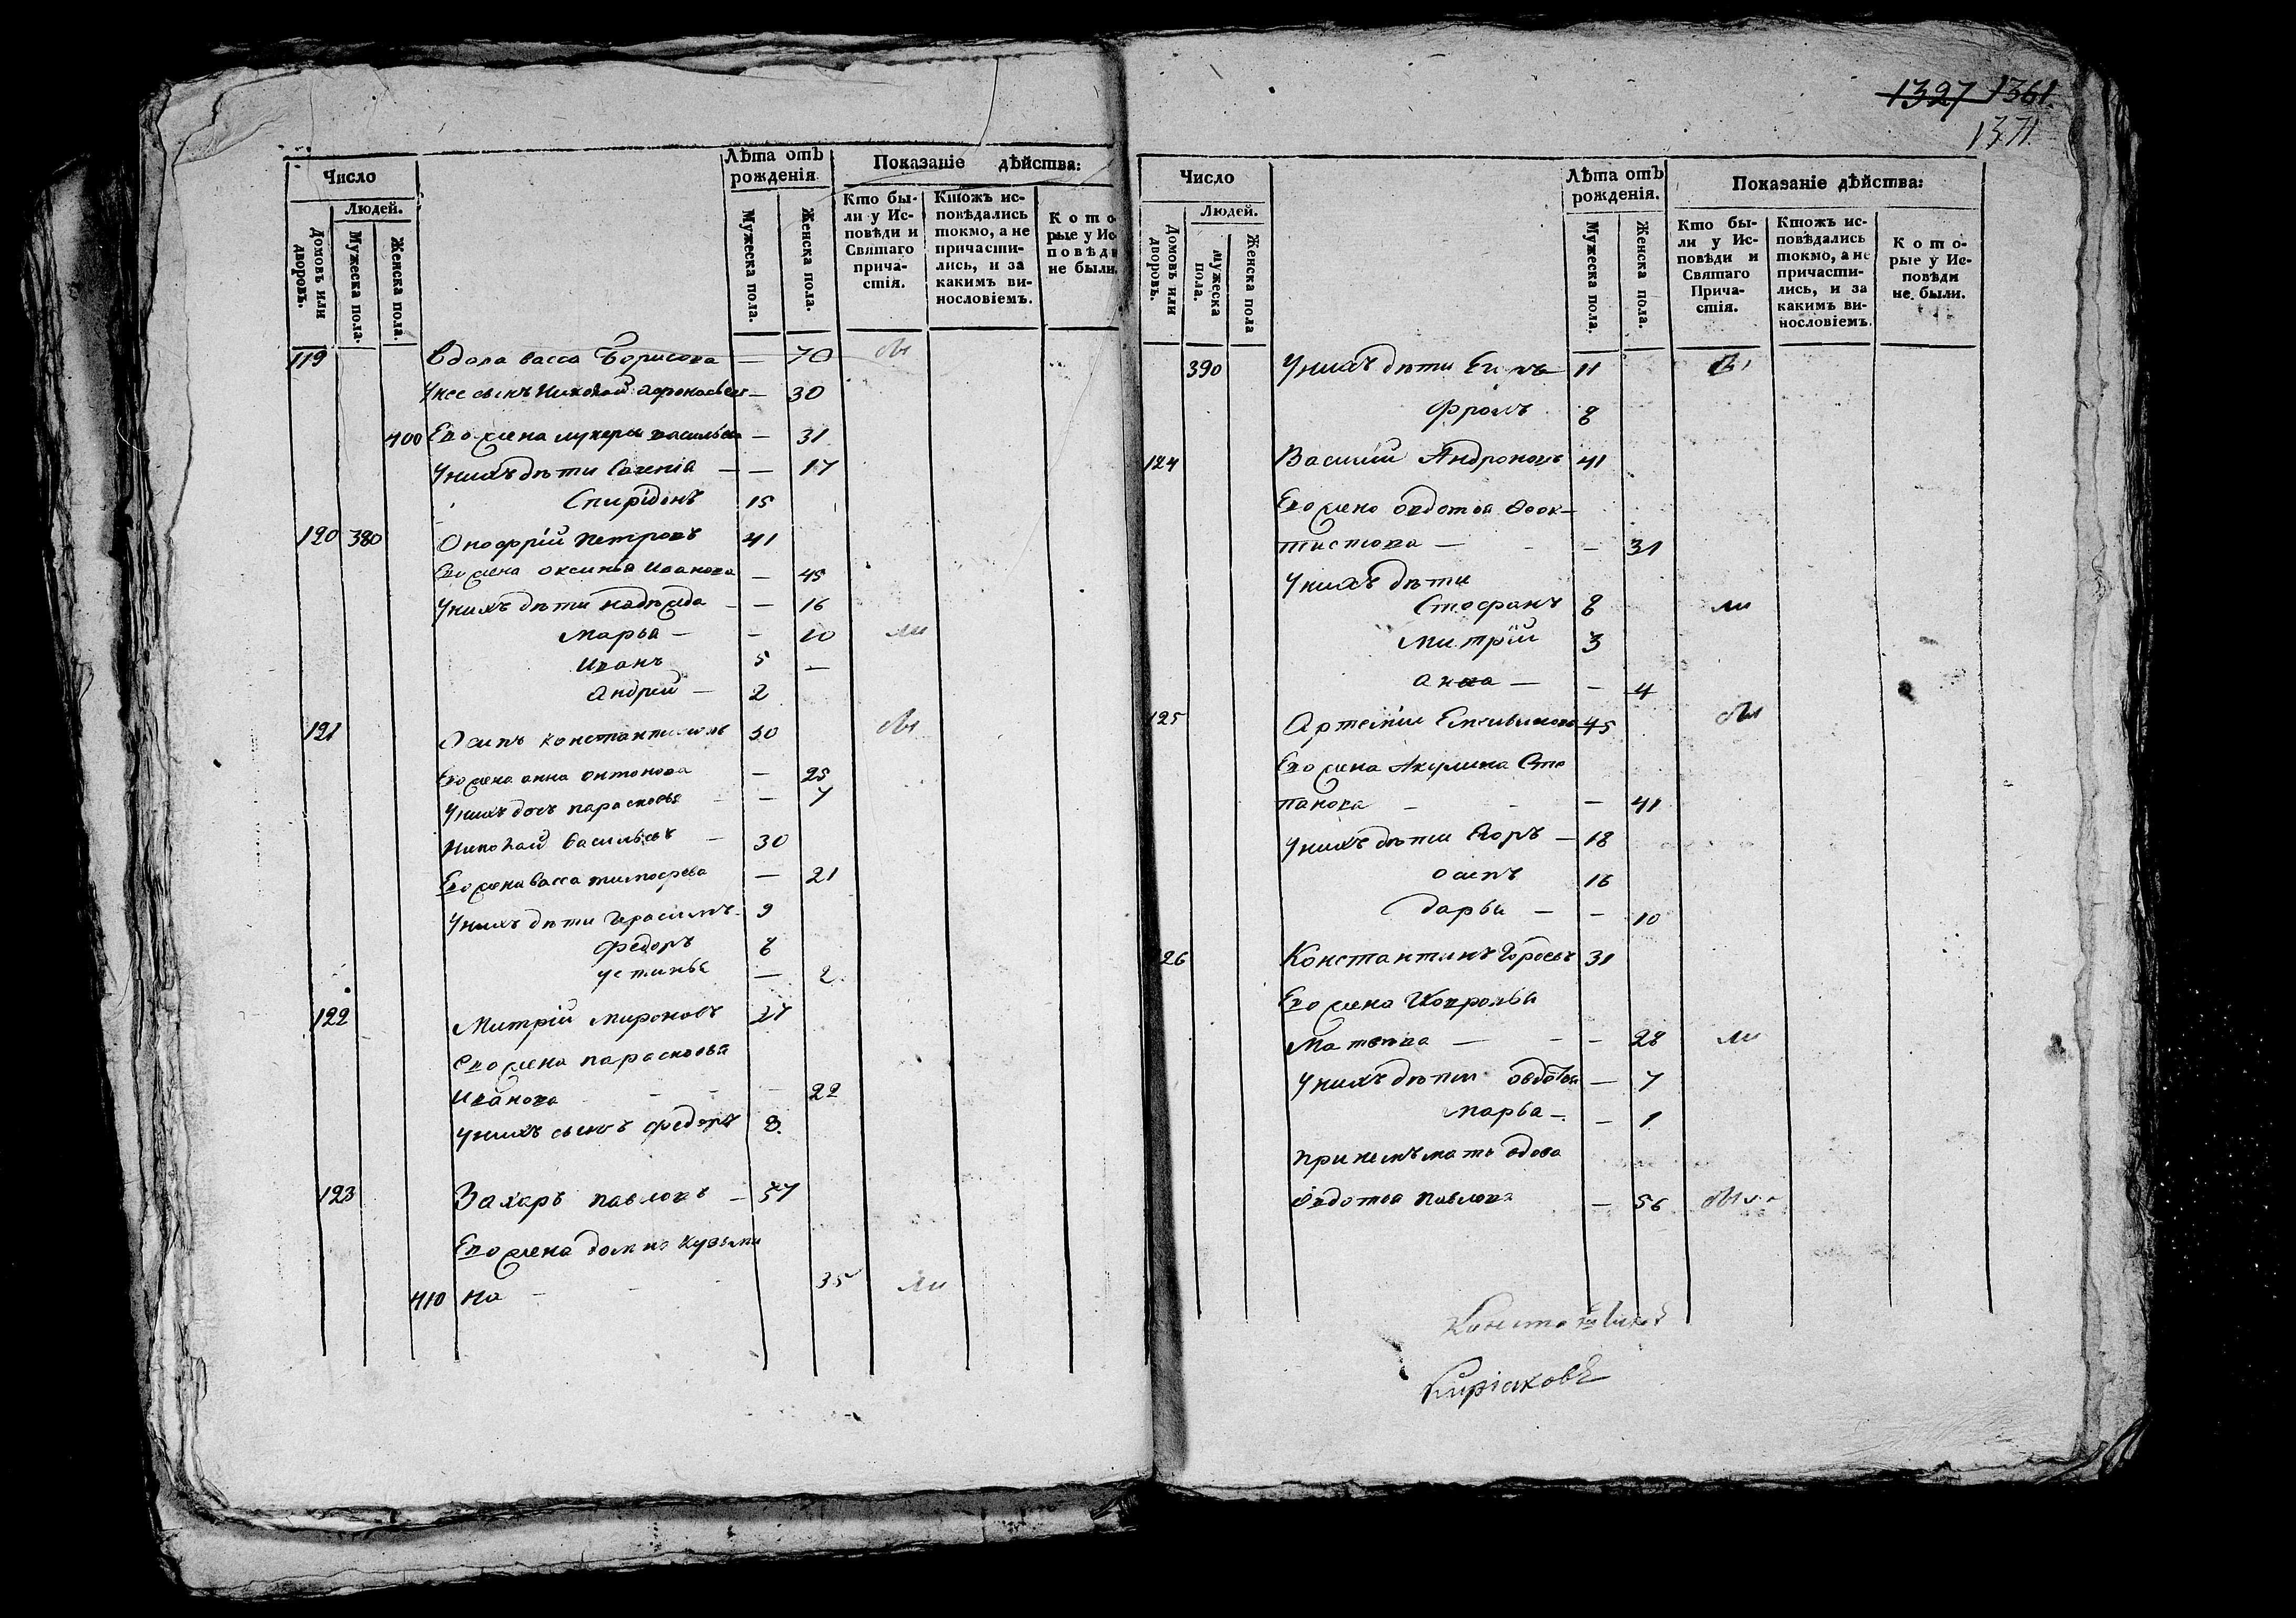 1327 1361.
1371
Число
Людей.
Домовъ или дворовъ.
Мужеска пола.
Женска пола.
Лѣта отъ рожденія
Мужеска пола.
Женска пола.
Показаніе дѣйства:
Кто бы-
ли у Ис-
повѣди и
Святаго
прича-
стія.
Ктожъ ис-
повѣдались
токмо, а не
причасти-
лись, и за
какимъ ви-
нословіемъ.
Кото
рые у Ис
повѣди
не были.
119 Вдова васса Борисова — 70 бы
Унее сынъ Николай — 30
400 Его жена лукерья васильева — 31
Унихъ дѣти — — 17
Спирідонъ 15
120 380 Онофрій петровъ 41
Его жена оксинья иванова — 45
Унихъ дѣти надѣжда — — 16
марья — — 10 ли
иванъ 5 —
андрей — 2
121 Осипъ константиновъ 30 бы
Его жена анна онтонова — 25
Унихъ дочь парасковья — — 7
Николай васильевъ — 30
Его жена васса тимофеева — 21
Унихъ дѣти Герасимъ 9
федоръ 8
устинья — 2
122 Митрій мироновъ 27
Его жена парасковья
иванова — — — 22
Унихъ сынъ федоръ 8
123 Захаръ павловъ — 57
Его жена домна кузьми
410 на — — 35 ли
Число
Людей.
Домовъ или дворовъ.
мужеска пола.
Женска пола
Лѣта отъ рожденія.
Мужеска пола.
Женска пола.
Показаніе дѣйства:
Кто бы-
ли у Ис-
повѣди и
Святаго
Прича-
стія.
Ктожъ ис-
повѣдались
токмо, а не
причасти-
лись, и за
какимъ ви-
нословіемъ.
Кото-
рые у Ис-
повѣди
не были.
390 Унихъ дѣти 11 бы
фролъ 8
124 Василій Андроновъ 41
Его жена овдотья Феок-
тистова — - — 31
Унихъ дѣти
Стефанъ 8 ли
митрій 3
анна — — 4
125 Артемій 45 бы
Его жена Акулина Сте
панова - - — 41
Унихъ дѣти Егоръ — 18
осипъ 16
дарья — — 10
126 Константинъ 31
Его жена
Матвѣева — - — 28 ли
Унихъ дѣти овдотья — 7
марья — — 1
принемъ мать вдова
Овдотья павлова — 56 были
Киріаковъ